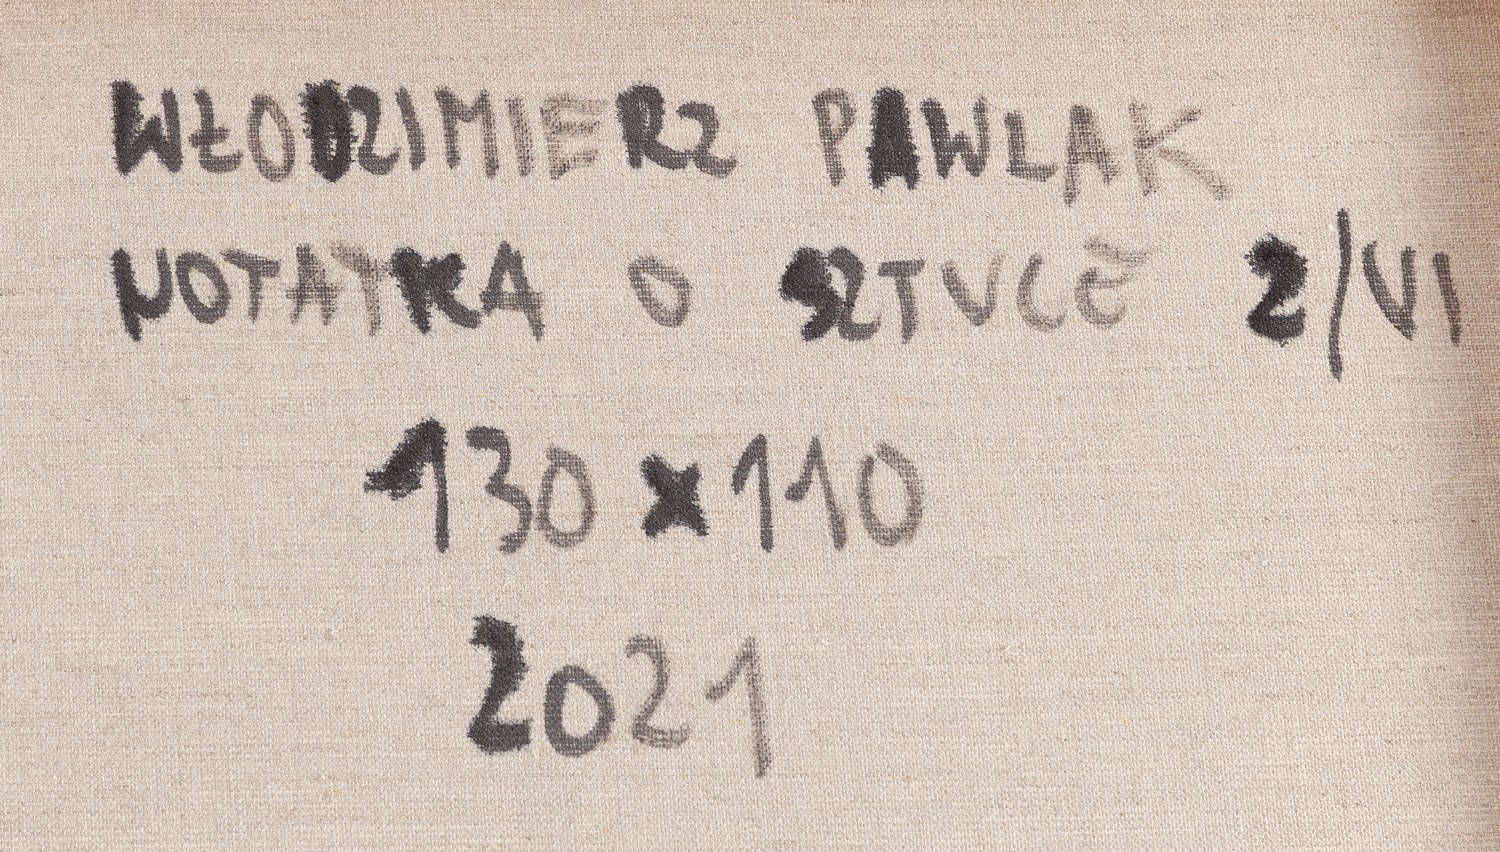 WŁODZIMIERZ PAWLAK
NOTATKA O SZTUCE 2/VI
130 x 110
2021